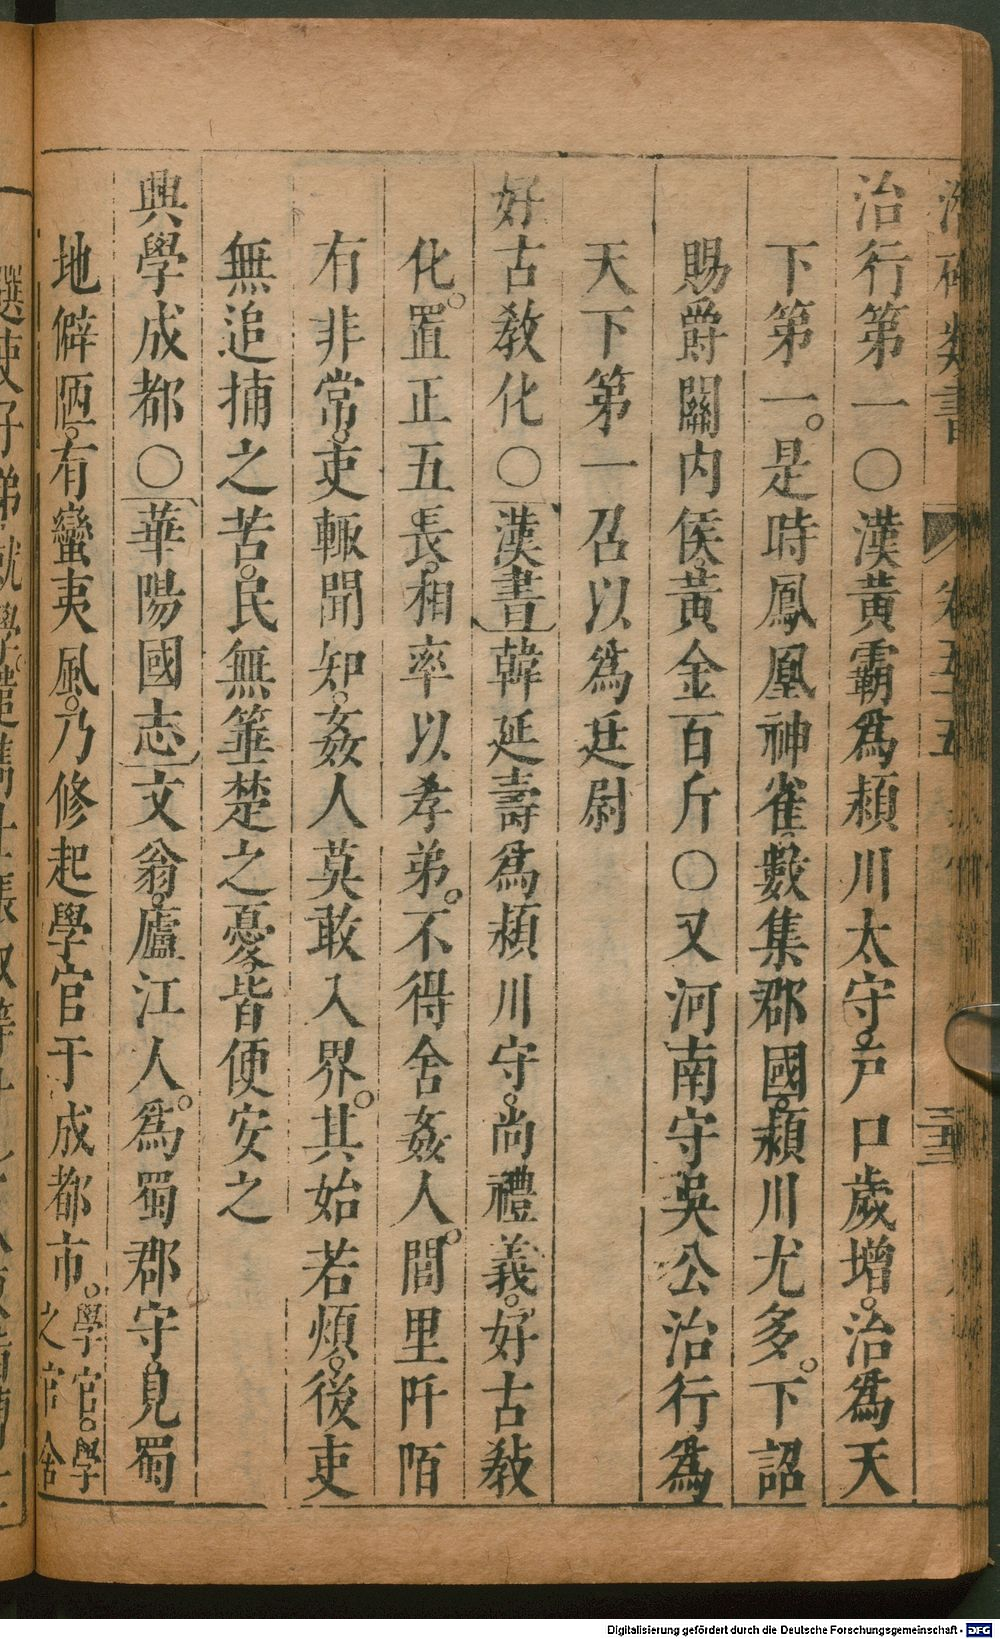 類書 卷五十五
治行第一〇漢黃霸爲潁川太守。戸口歲增。治爲天
下第一。是時鳳凰神雀。數集郡國。潁川尤多。下詔
賜爵關内侯。黃金百斤〇又河南守吳公治行爲
天下第一召以爲廷尉
好古敎化〇漢書韓延壽爲潁川守。尚禮義。好古敎
化。置正五長。相率以孝弟。不得舍姦人。閭里阡陌
有非常。吏輙聞知。姦人莫敢入界。其始若煩。後吏
無追捕之苦。民無箠楚之憂。皆便安之
興學成都〇華陽國志文翁。廬江人。爲蜀郡守。見蜀
地僻陋。有蠻夷風。乃修起學官于成都市。學官。學
之官舍
選吏子弟就學。遣雋士張叔等十
Digitalisierung gefördert durch die Deutsche Forschungsgemeinschaft - DFG